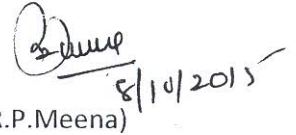 8/10/2015
.P.Meena)